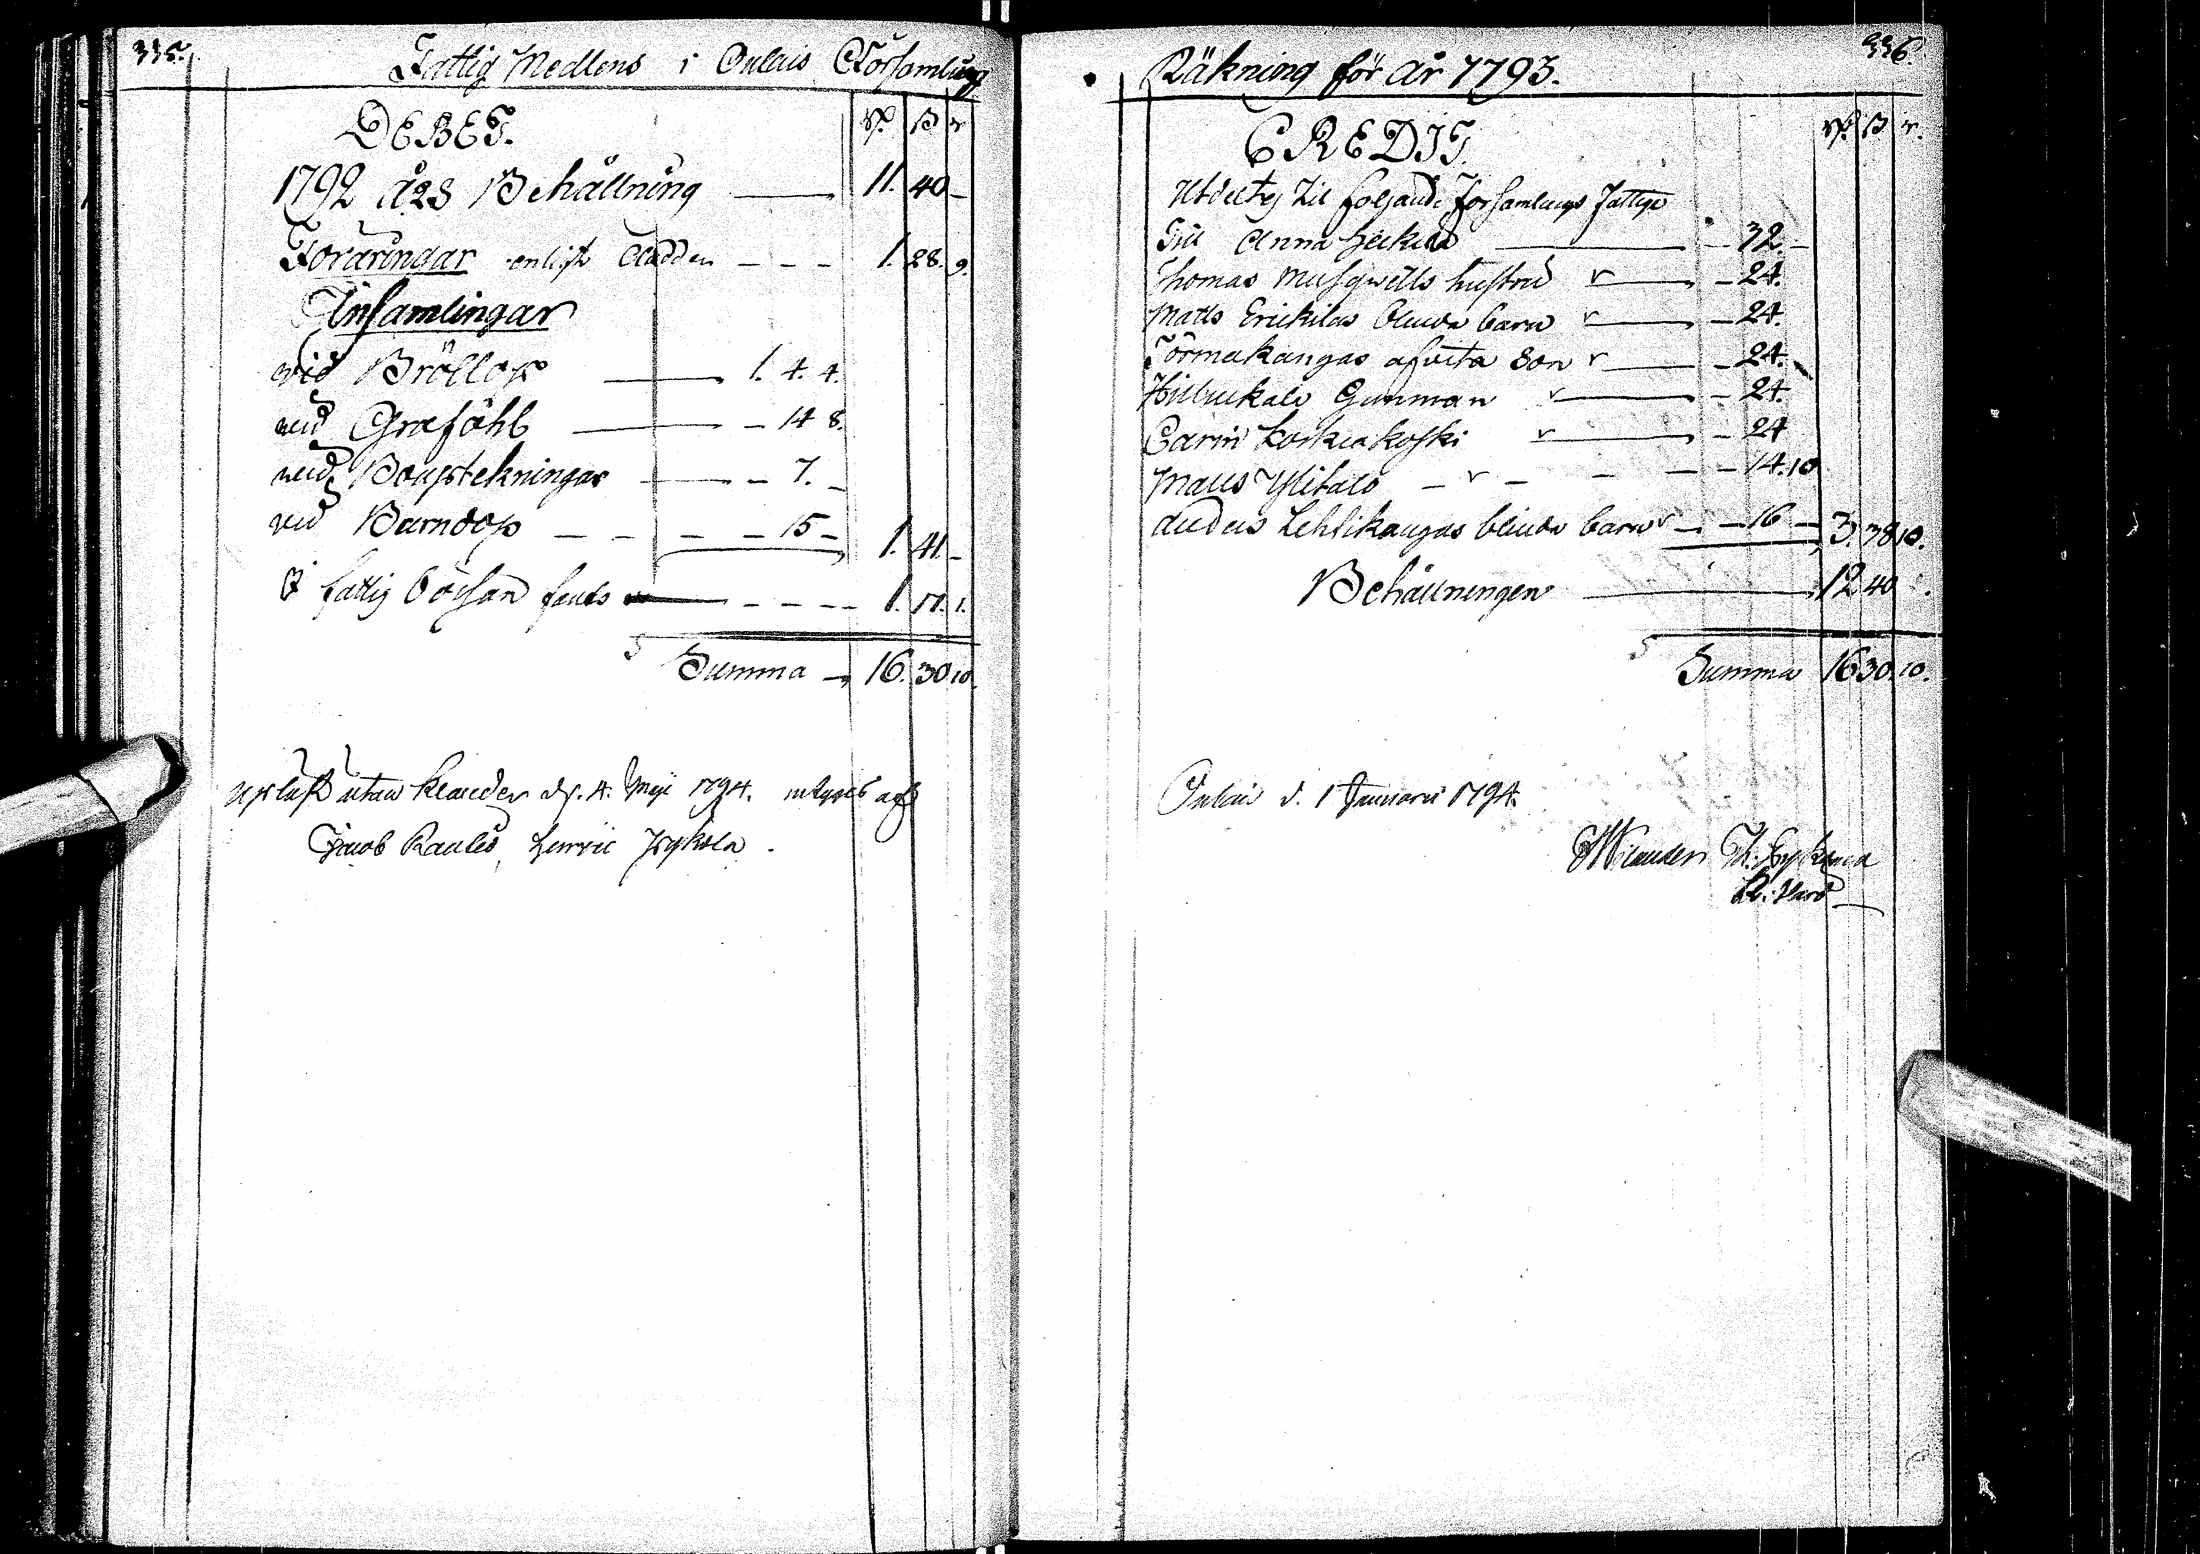 335.
Fattig Medlens i Oulais Församling
DEBET.
Rd ß r
1792 Års Behållning 11. 40 -
Föräringar enligt Cladden - - - 1. 28. 9.
Insamlingar
vid Bröllop 1. 4. 4.
vid Graföhl - 14 8.
vid Bouptekningar - 7. -
vid Barndop - - - - 15 - 1. 41. -
I fattig bössan fants - - - - 1. 17. 1.
Summa 16. 30 10.
Upläst utan klander d. 4. Maji 1794. intygas af
Jacob Raulio, Henric Jylkola.
336.
Räkning för år 1793.
CREDIT.
Rd ß r.
Utdelts til följande Församlings Fattige
Till Anna Heikilä - 32 -
Thomas hustru - 24.
Matts Erickilas blinda barn - 24.
Törmäkangas afvita son - 24.
Gumman - 24.
Carin Koskikoski - 24
Matts Ylitalo - - - - - 14. 10
Lehtikangas blinda barn - - 16 - 3. 38 10.
Behållningen 12 40 .
Summa 16 30. 10.
Oulais d. 1 Januarii 1794.